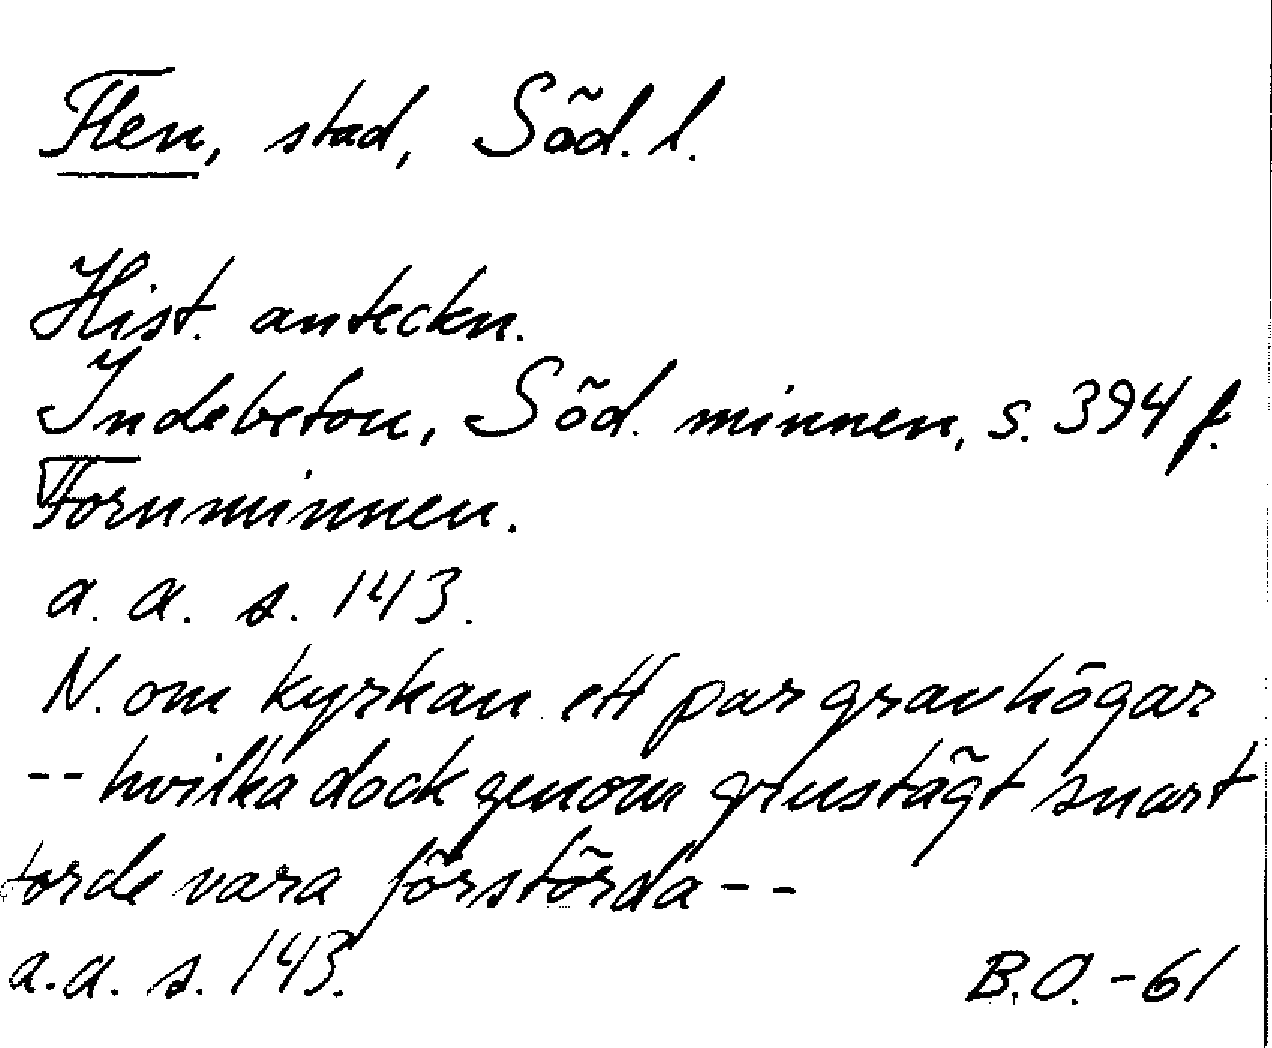 Flen, stad, Söd. l.
Hist. anteckn.
Indebetou, Söd. minnen, s. 394 f.
Fornminnen.
a. a. s. 143.
N. om kyrkan ett par gravhögar
-- hvilka dock genom grustägt snart
torde vara förstörda --
a.a. s. 143.
B.O. -61